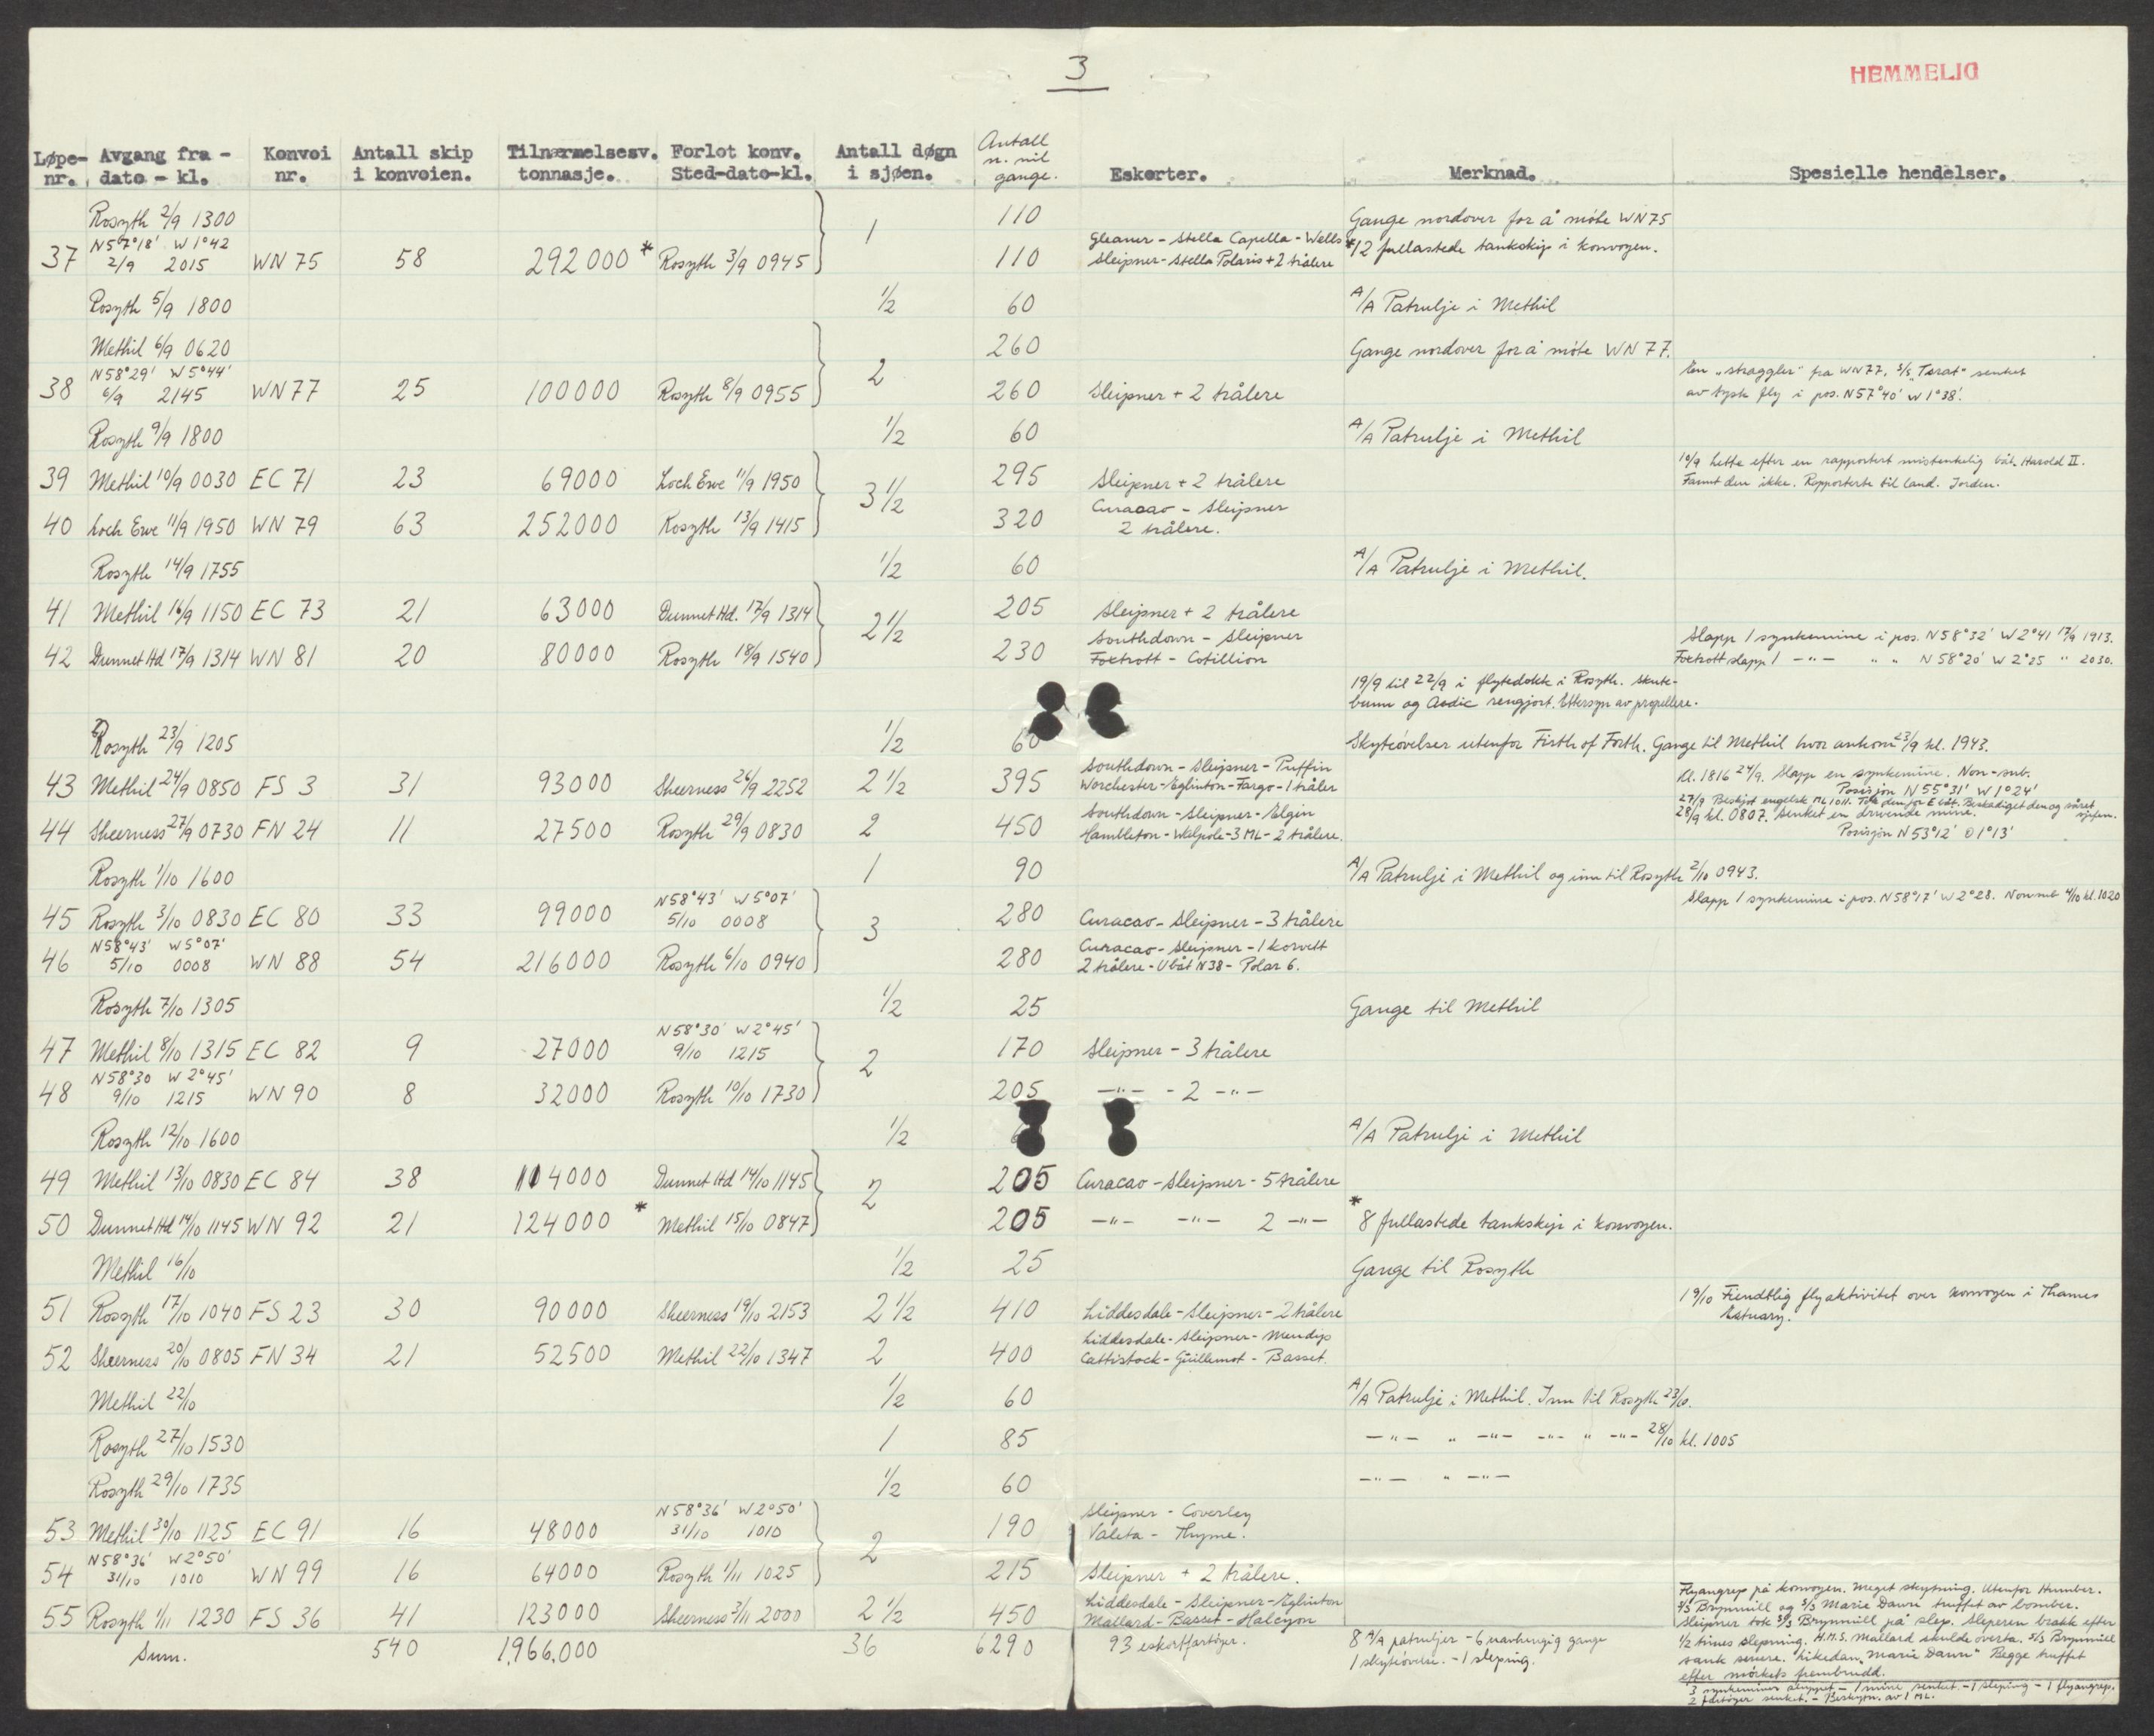 3
HEMMELIG
Løpe-nr. Avgang fra - dato - kl. Konvoi nr. Antall skip i konvoien. Tilnærmelsesv. tonnasje. Forlot konv. Sted-dato-kl. Antall døgn i sjøen. Antall n. mil gange. Eskorter. Merknad. Spesielle hendelser.
Rosyth 2/9 1300 1 110 Gange nordover for å møte WN 75
37 N57°18' W1°42 2/9 2015 WN 75 58 292000 * Rosyth 3/9 0945 110 Gleaner - Stella Capella - Wells Sleipner - Stella Polaris + 2 trålere *12 fullastede tankskip i konvoyen.
Rosyth 5/9 1800 1/2 60 A/A Patrulje i Methil
Methil 6/9 0620 2 260 Gange nordover for å møte WN 77.
38 N58°29' W5°44' 6/9 2145 WN 77 25 100000 Rosyth 8/9 0955 260 Sleipner + 2 trålere En "straggler" fra WN 77, S/S "Terat" senket
av tysk fly i pos. N57°40' W1°38'.
Rosyth 9/9 1800 1/2 60 A/A Patrulje i Methil
39 Methil 10/9 0030 EC 71 23 69000 Loch Ewe 11/9 1950 3 1/2 295 Sleipner + 2 trålere 10/9 Lette efter en rapportert mistenkelig båt. Harold II.
Fannt den ikke. Rapporterte til land. Jorden.
40 Loch Ewe 11/9 1950 WN 79 63 252000 Rosyth 13/9 1415 320 Curacao - Sleipner
2 trålere.
Rosyth 14/9 1755 1/2 60 A/A Patrulje i Methil.
41 Methil 16/9 1150 EC 73 21 63000 Dunnet Hd. 17/9 1314 2 1/2 205 Sleipner + 2 trålere
42 Dunnet Hd 17/9 1314 WN 81 20 80000 Rosyth 18/9 1540 230 Southdown - Sleipner
Foxtrott - Cotillion Slapp 1 synkemine i pos. N58°32' W2°41 17/9 1913.
Foxtrott slapp 1 -"- " " N58°20' W2°25 " 2030.
19/9 til 22/9 i flytedokk i Rosyth. Skute-
bunn og Asdic rengjort. Ettersyn av propellere.
Rosyth 23/9 1205 1/2 60 Skyteøvelser utenfor Firth of Forth. Gange til Methil hvor ankom 23/9 kl. 1943.
43 Methil 24/9 0850 FS 3 31 93000 Sheerness 26/9 2252 2 1/2 395 Southdown - Sleipner - Puffin
Worchester - Eglinton - Fargo - 1 tråler Kl. 1816 24/9. Slapp en synkemine. Non-sub.
Posisjon N55°31' W1°24'
27/9 Beskjøt engelsk ML 1011. Tok den for E båt. Beskadiget den og såret sjefen.
44 Sheerness 27/9 0730 FN 24 11 27500 Rosyth 29/9 0830 2 450 Southdown - Sleipner - Elgin
Hambleton - Walpole - 3 ML - 2 trålere. 28/9 kl. 0807. Senket en drivende mine.
Posisjon N53°12' O1°13'
Rosyth 1/10 1600 1 90 A/A Patrulje i Methil og inn til Rosyth 2/10 0943.
45 Rosyth 3/10 0830 EC 80 33 99000 N58°43' W5°07' 5/10 0008 3 280 Curacao - Sleipner - 3 trålere Slapp 1 synkemine i pos. N58°17' W2°28. Nonsub 4/10 kl. 1020
46 N58°43' W5°07' 5/10 0008 WN 88 54 216000 Rosyth 6/10 0940 280 Curacao - Sleipner - 1 korvett
2 trålere - Ubåt N38 - Polar 6.
Rosyth 7/10 1305 1/2 25 Gange til Methil
47 Methil 8/10 1315 EC 82 9 27000 N58°30' W2°45' 9/10 1215 2 170 Sleipner - 3 trålere
48 N58°30 W2°45' 9/10 1215 WN 90 8 32000 Rosyth 10/10 1730 205 -"- - 2 -"-
Rosyth 12/10 1600 1/2 A/A Patrulje i Methil
49 Methil 13/10 0830 EC 84 38 114000 Dunnet Hd 14/10 1145 2 205 Curacao - Sleipner - 5 trålere
50 Dunnet Hd 14/10 1145 WN 92 21 124000 * Methil 15/10 0847 205 -"- -"- 2 -"- * 8 fullastede tankskip i konvoyen.
Methil 16/10 1/2 25 Gange til Rosyth
51 Rosyth 17/10 1040 FS 23 30 90000 Sheerness 19/10 2153 2 1/2 410 Liddesdale - Sleipner - 2 trålere 19/10 Fiendtlig flyaktivitet over konvoyen i Thames
Estuary.
52 Sheerness 20/10 0805 FN 34 21 52500 Methil 22/10 1347 2 400 Liddesdale - Sleipner - Mendip
Cattistock - Guillemot - Basset.
Methil 22/10 1/2 60 A/A Patrulje i Methil. Inn til Rosyth 23/10.
Rosyth 27/10 1530 1 85 -"- " -"- -"- " -"- 28/10 kl. 1005
Rosyth 29/10 1735 1/2 60 -"- " -"-
53 Methil 30/10 1125 EC 91 16 48000 N58°36' W2°50' 31/10 1010 2 190 Sleipner - Coverley
Valeta - Thyme.
54 N58°36' W2°50' 31/10 1010 WN 99 16 64000 Rosyth 1/11 1025 215 Sleipner + 2 trålere.
55 Rosyth 1/11 1230 FS 36 41 123000 Sheerness 3/11 2000 2 1/2 450 Liddesdale - Sleipner - Eglinton
Mallard - Basset - Halcyon
Flyangrep på konvoyen. Meget skytning. Utenfor Humber.
S/S Brynmill og S/S Marie Dawn truffet av bomber.
Sleipner tok S/S Brynmill på slep. Sleperen brakk efter
1/2 times slepning. H.M.S. Mallard skulde overta. S/S Brynmill
sank senere. Likedan "Marie Dawn" Begge truffet
efter mørkets frembrudd.
Sum. 540 1,966,000 36 6290 93 eskortfartøyer. 8 A/A patruljer - 6 uavhengig gange
1 skyteøvelse. - 1 sleping.
3 synkeminer sluppet - 1 mine senket. - 1 sleping - 1 flyangrep.
2 fartøyer senket. - Beskytn. av 1 ML.